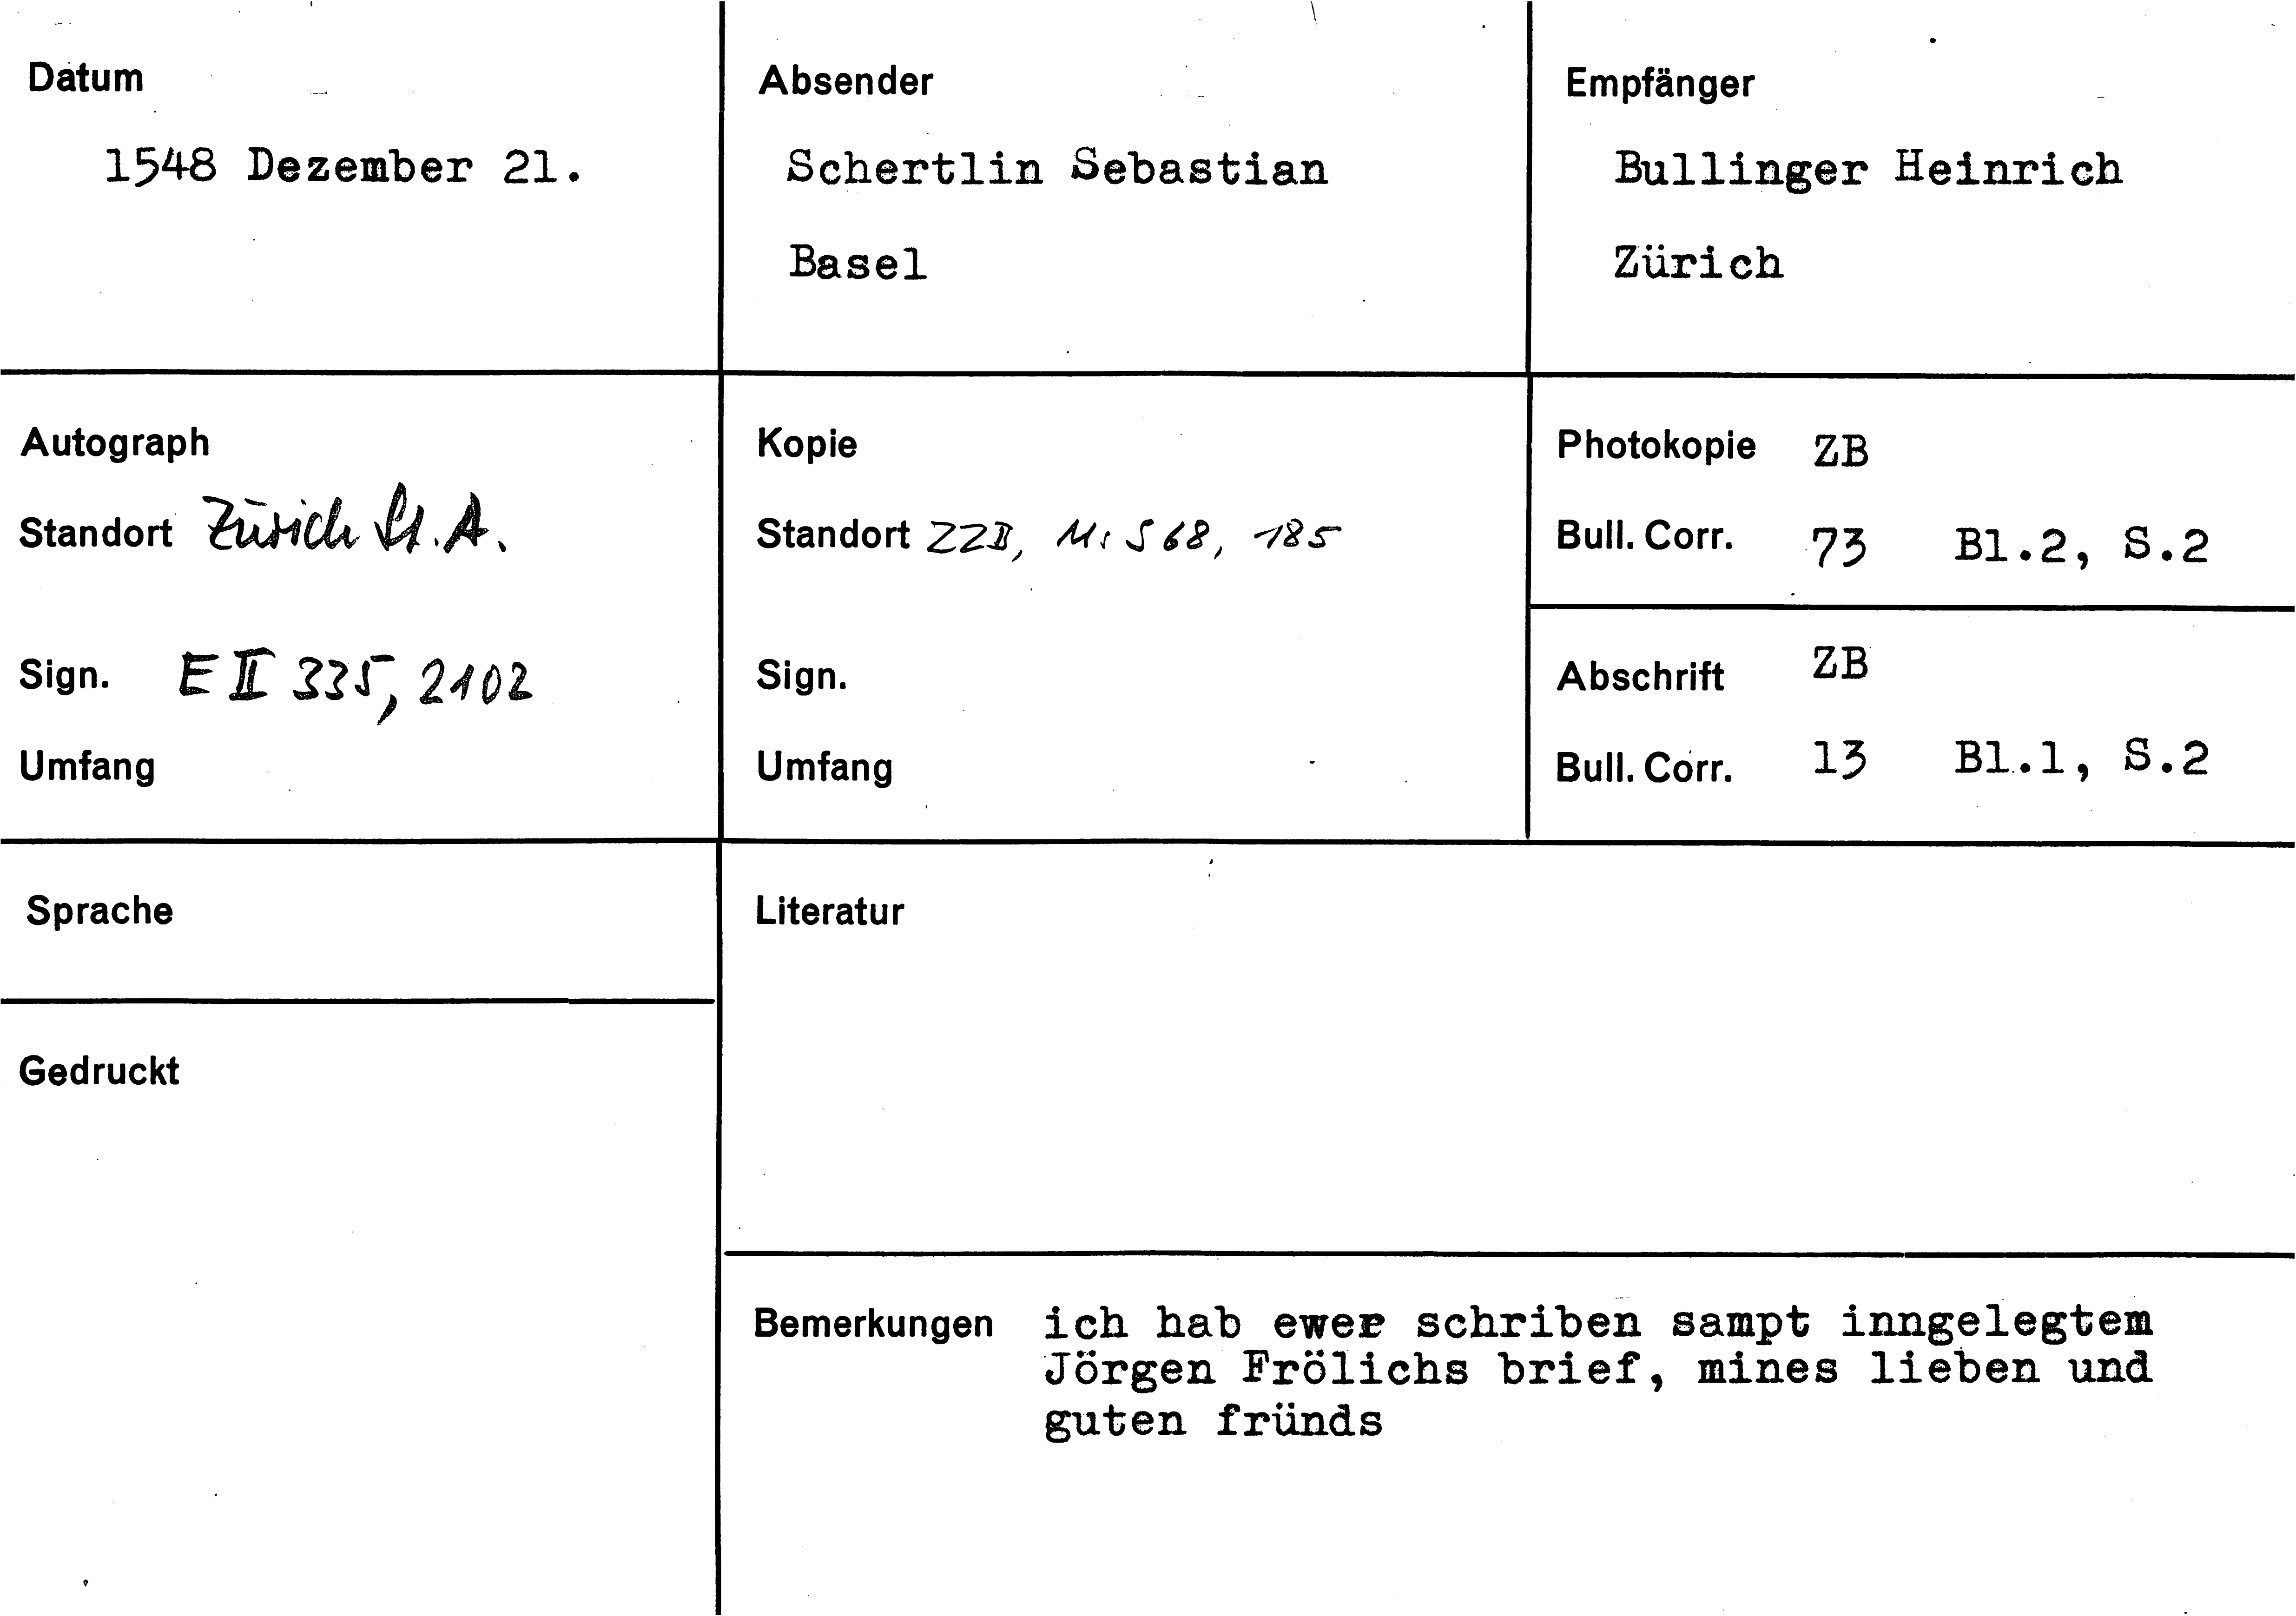 Datum
1548 Dezember 21.
Absender
Schertlin Sebastian
Basel
Empfänger
Bullinger Heinrich
Zürich
Autograph
Standort Zürich St. A.
Sign. E II 335, 2102
Umfang
Kopie
Standort ZZB, Ms S 68, 185
Sign.
Umfang
Photokopie ZB
Bull. Corr. 73 Bl.2, S.2
Abschrift ZB
Bull. Corr. 13 Bl.1, S.2
Sprache
Gedruckt
Literatur
Bemerkungen ich hab ewer schriben sampt inngelegtem
Jörgen Frölichs brief, mines lieben und
guten fründs